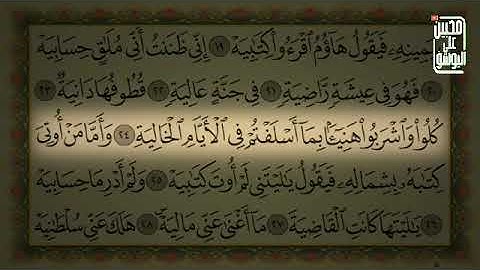 بِيَمِينِهِۦ فَيَقُولُ هَآؤُمُ ٱقۡرَءُواْ كِتَٰبِيَهۡ ١٩ إِنِّي ظَنَنتُ أَنِّي مُلَٰقٍ حِسَابِيَهۡ
٢٠ فَهُوَ فِي عِيشَةٖ رَّاضِيَةٖ ٢١ فِي جَنَّةٍ عَالِيَةٖ ٢٢ قُطُوفُهَا دَانِيَةٞ ٢٣
كُلُواْ وَٱشۡرَبُواْ هَنِيٓـَٔۢا بِمَآ أَسۡلَفۡتُمۡ فِي ٱلۡأَيَّامِ ٱلۡخَالِيَةِ ٢٤ وَأَمَّا مَنۡ أُوتِيَ
كِتَٰبَهُۥ بِشِمَالِهِۦ فَيَقُولُ يَٰلَيۡتَنِي لَمۡ أُوتَ كِتَٰبِيَهۡ ٢٥ وَلَمۡ أَدۡرِ مَا حِسَابِيَهۡ
٢٦ يَٰلَيۡتَهَا كَانَتِ ٱلۡقَاضِيَةَ ٢٧ مَآ أَغۡنَىٰ عَنِّي مَالِيَهۡۜ ٢٨ هَلَكَ عَنِّي سُلۡطَٰنِيَهۡ
محبين
علي
اليوتيوب